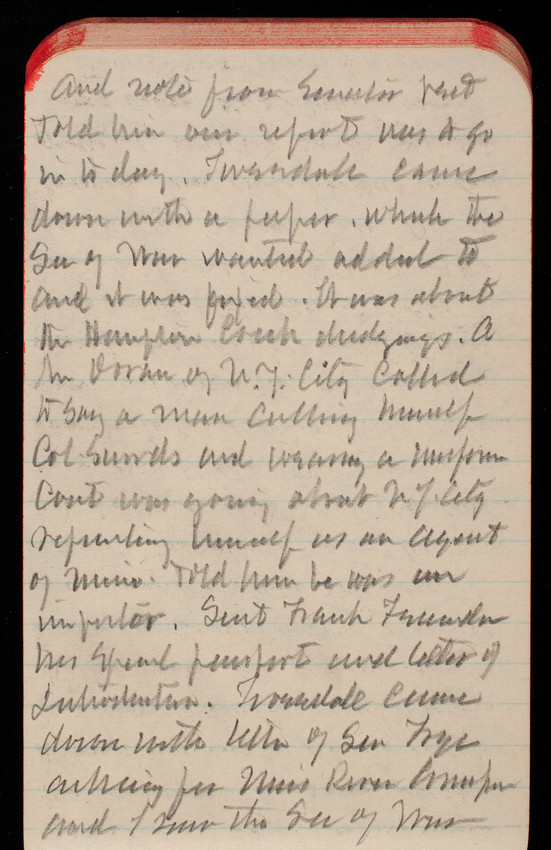 and note from Senator Vest
Told him our report was to go
in to day. Truesdale came
down with a paper. which the
Sec of War wanted added to
and it was fixed. It was about
the Hampton Creek dredgings. A
Mr Doran of N.Y. City Called
to say a man calling himself
Col Swords and wearing a uniform
Coat was going about N Y City
representing himself as an agent
of mine. Told him he was an
imposter. Sent Frank
his Special passport and letter of
Introduction. Truesdale came
down with letter of Sen Frye
asking for Miss River
and I saw the Sec of War